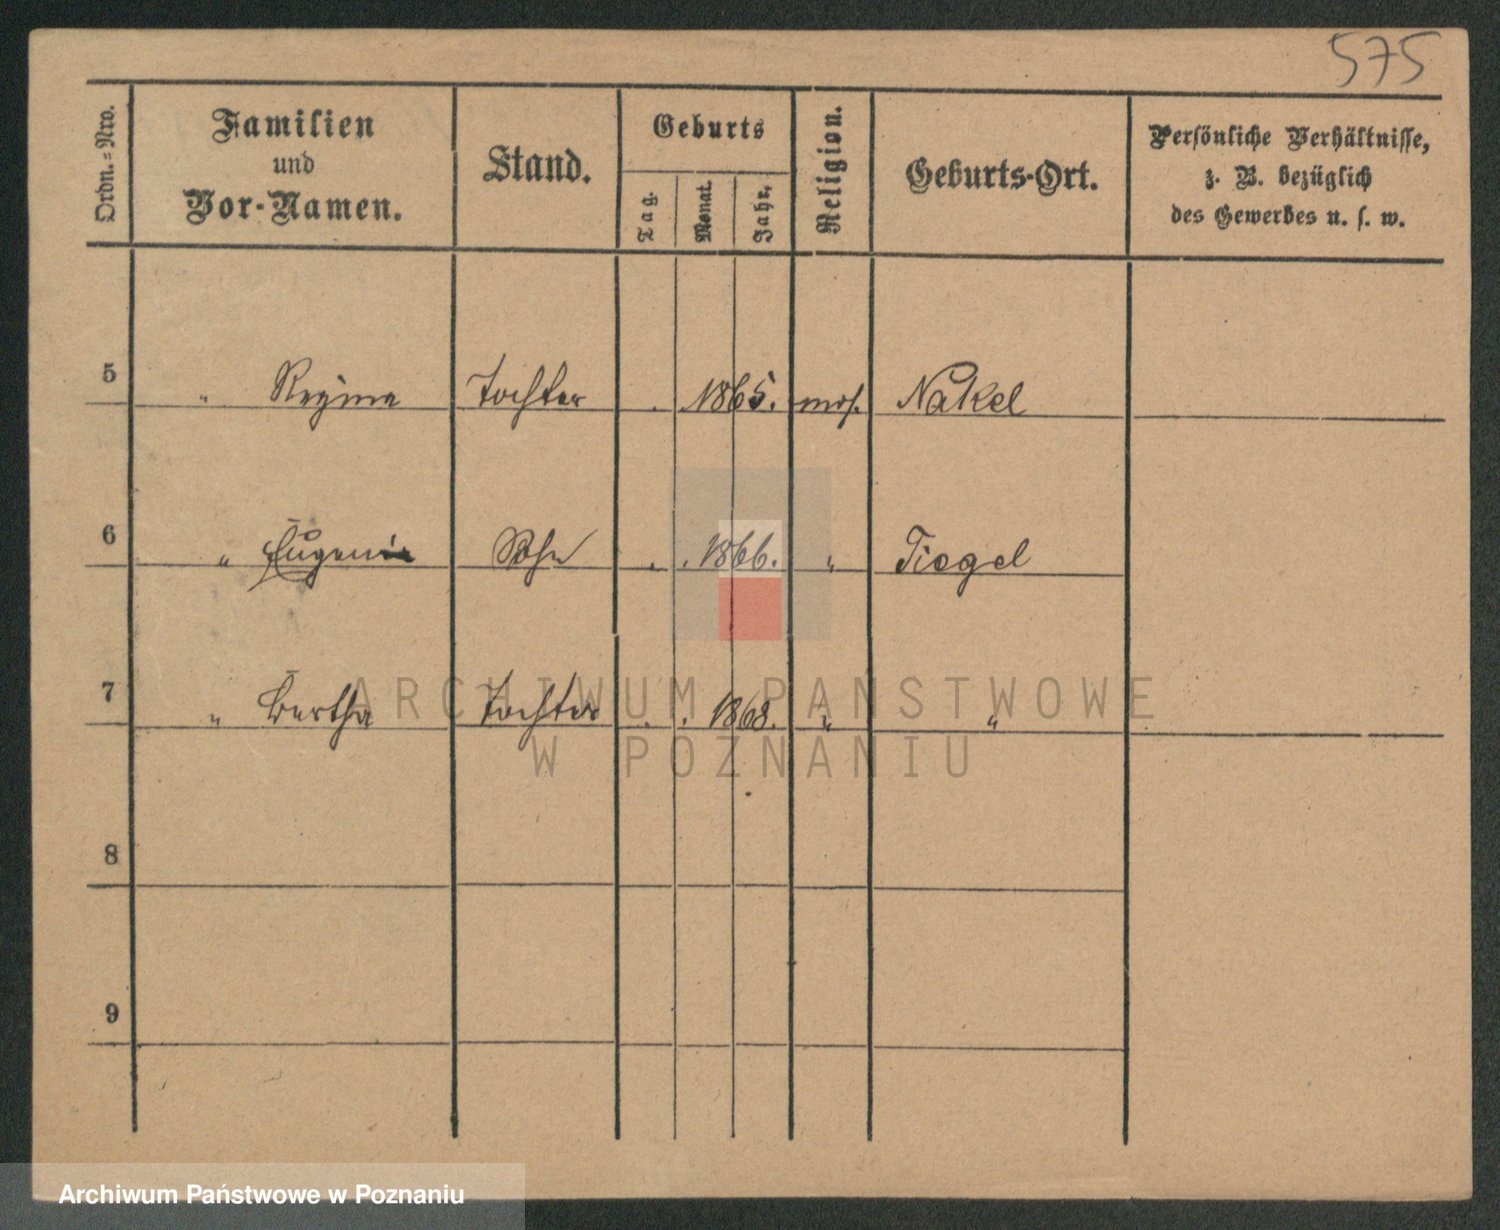 575
Ordn.=Nro.
Familien
und
Vor-Namen.
Stand.
Geburts
Tag.
Monat.
Jahr.
Religion.
Geburts-Ort.
Persönliche Verhältnisse,
z. B. bezüglich
des Gewerbes u. s. w.
5 " Regina Tochter . 1865. mos. Nakel
6 " Eugen Sohn . . 1866. "
7 " Bertha Tochter . . 1868. " "
8
9
ARCHIWUM PANSTWOWE
W POZNANIU
Archiwum Państwowe w Poznaniu